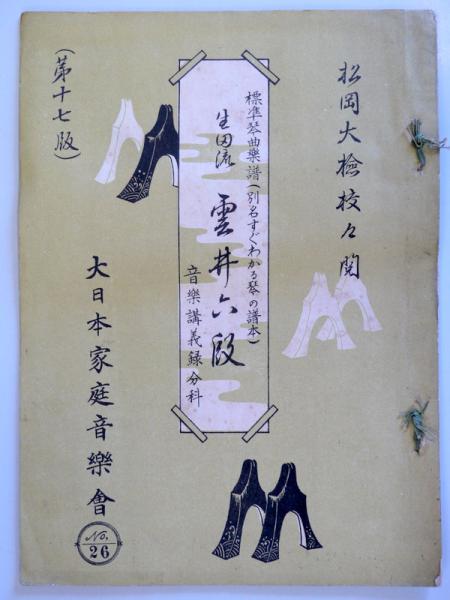 松岡大檢校々閲
標準琴曲樂譜(別名すぐわかる琴の譜本)
生田流 雲井六段
音樂講義録分科
(第十七版)
大日本家庭音樂會
No. 26